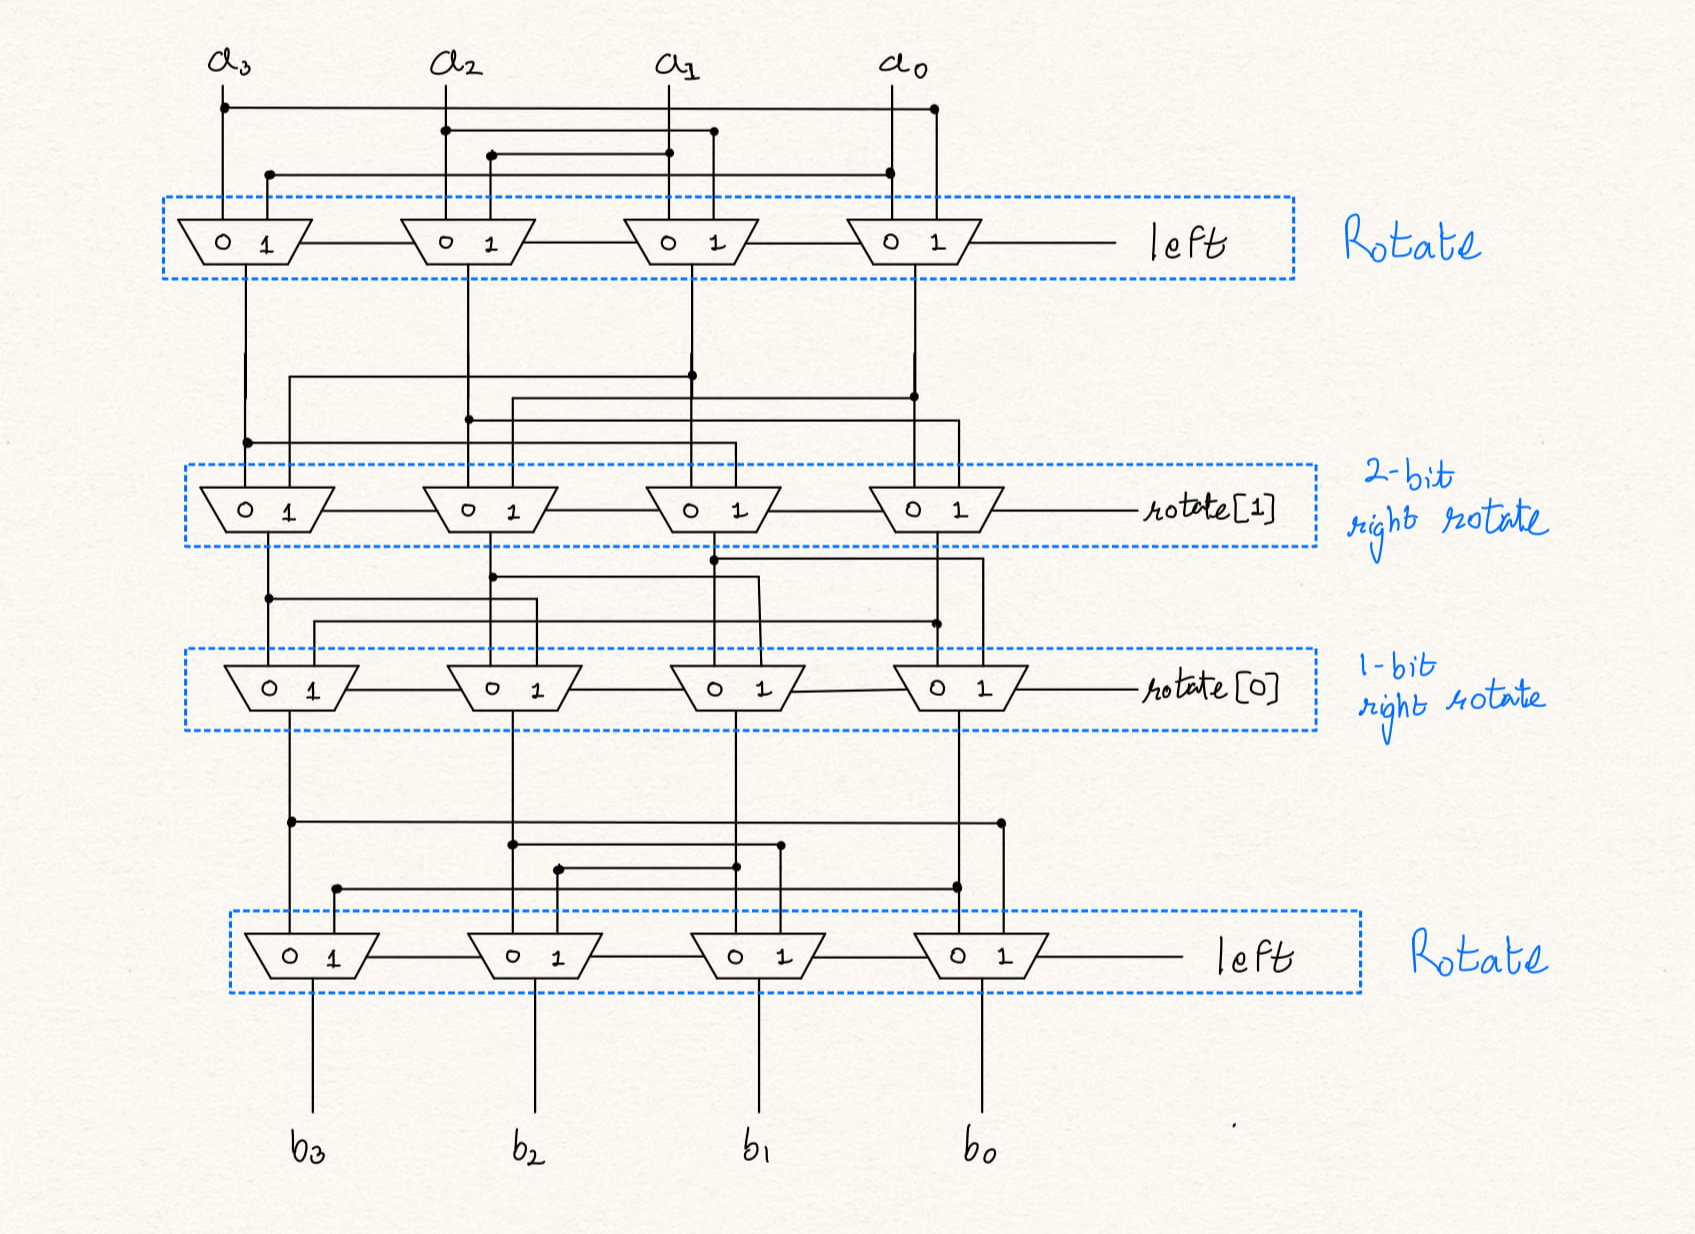 a3 a2 a1 a0
0 1 0 1 0 1 0 1 left Rotate
0 1 0 1 0 1 0 1 rotate[1] 2-bit
right rotate
0 1 0 1 0 1 0 1 rotate[0] 1-bit
right rotate
0 1 0 1 0 1 0 1 left Rotate
b3 b2 b1 b0